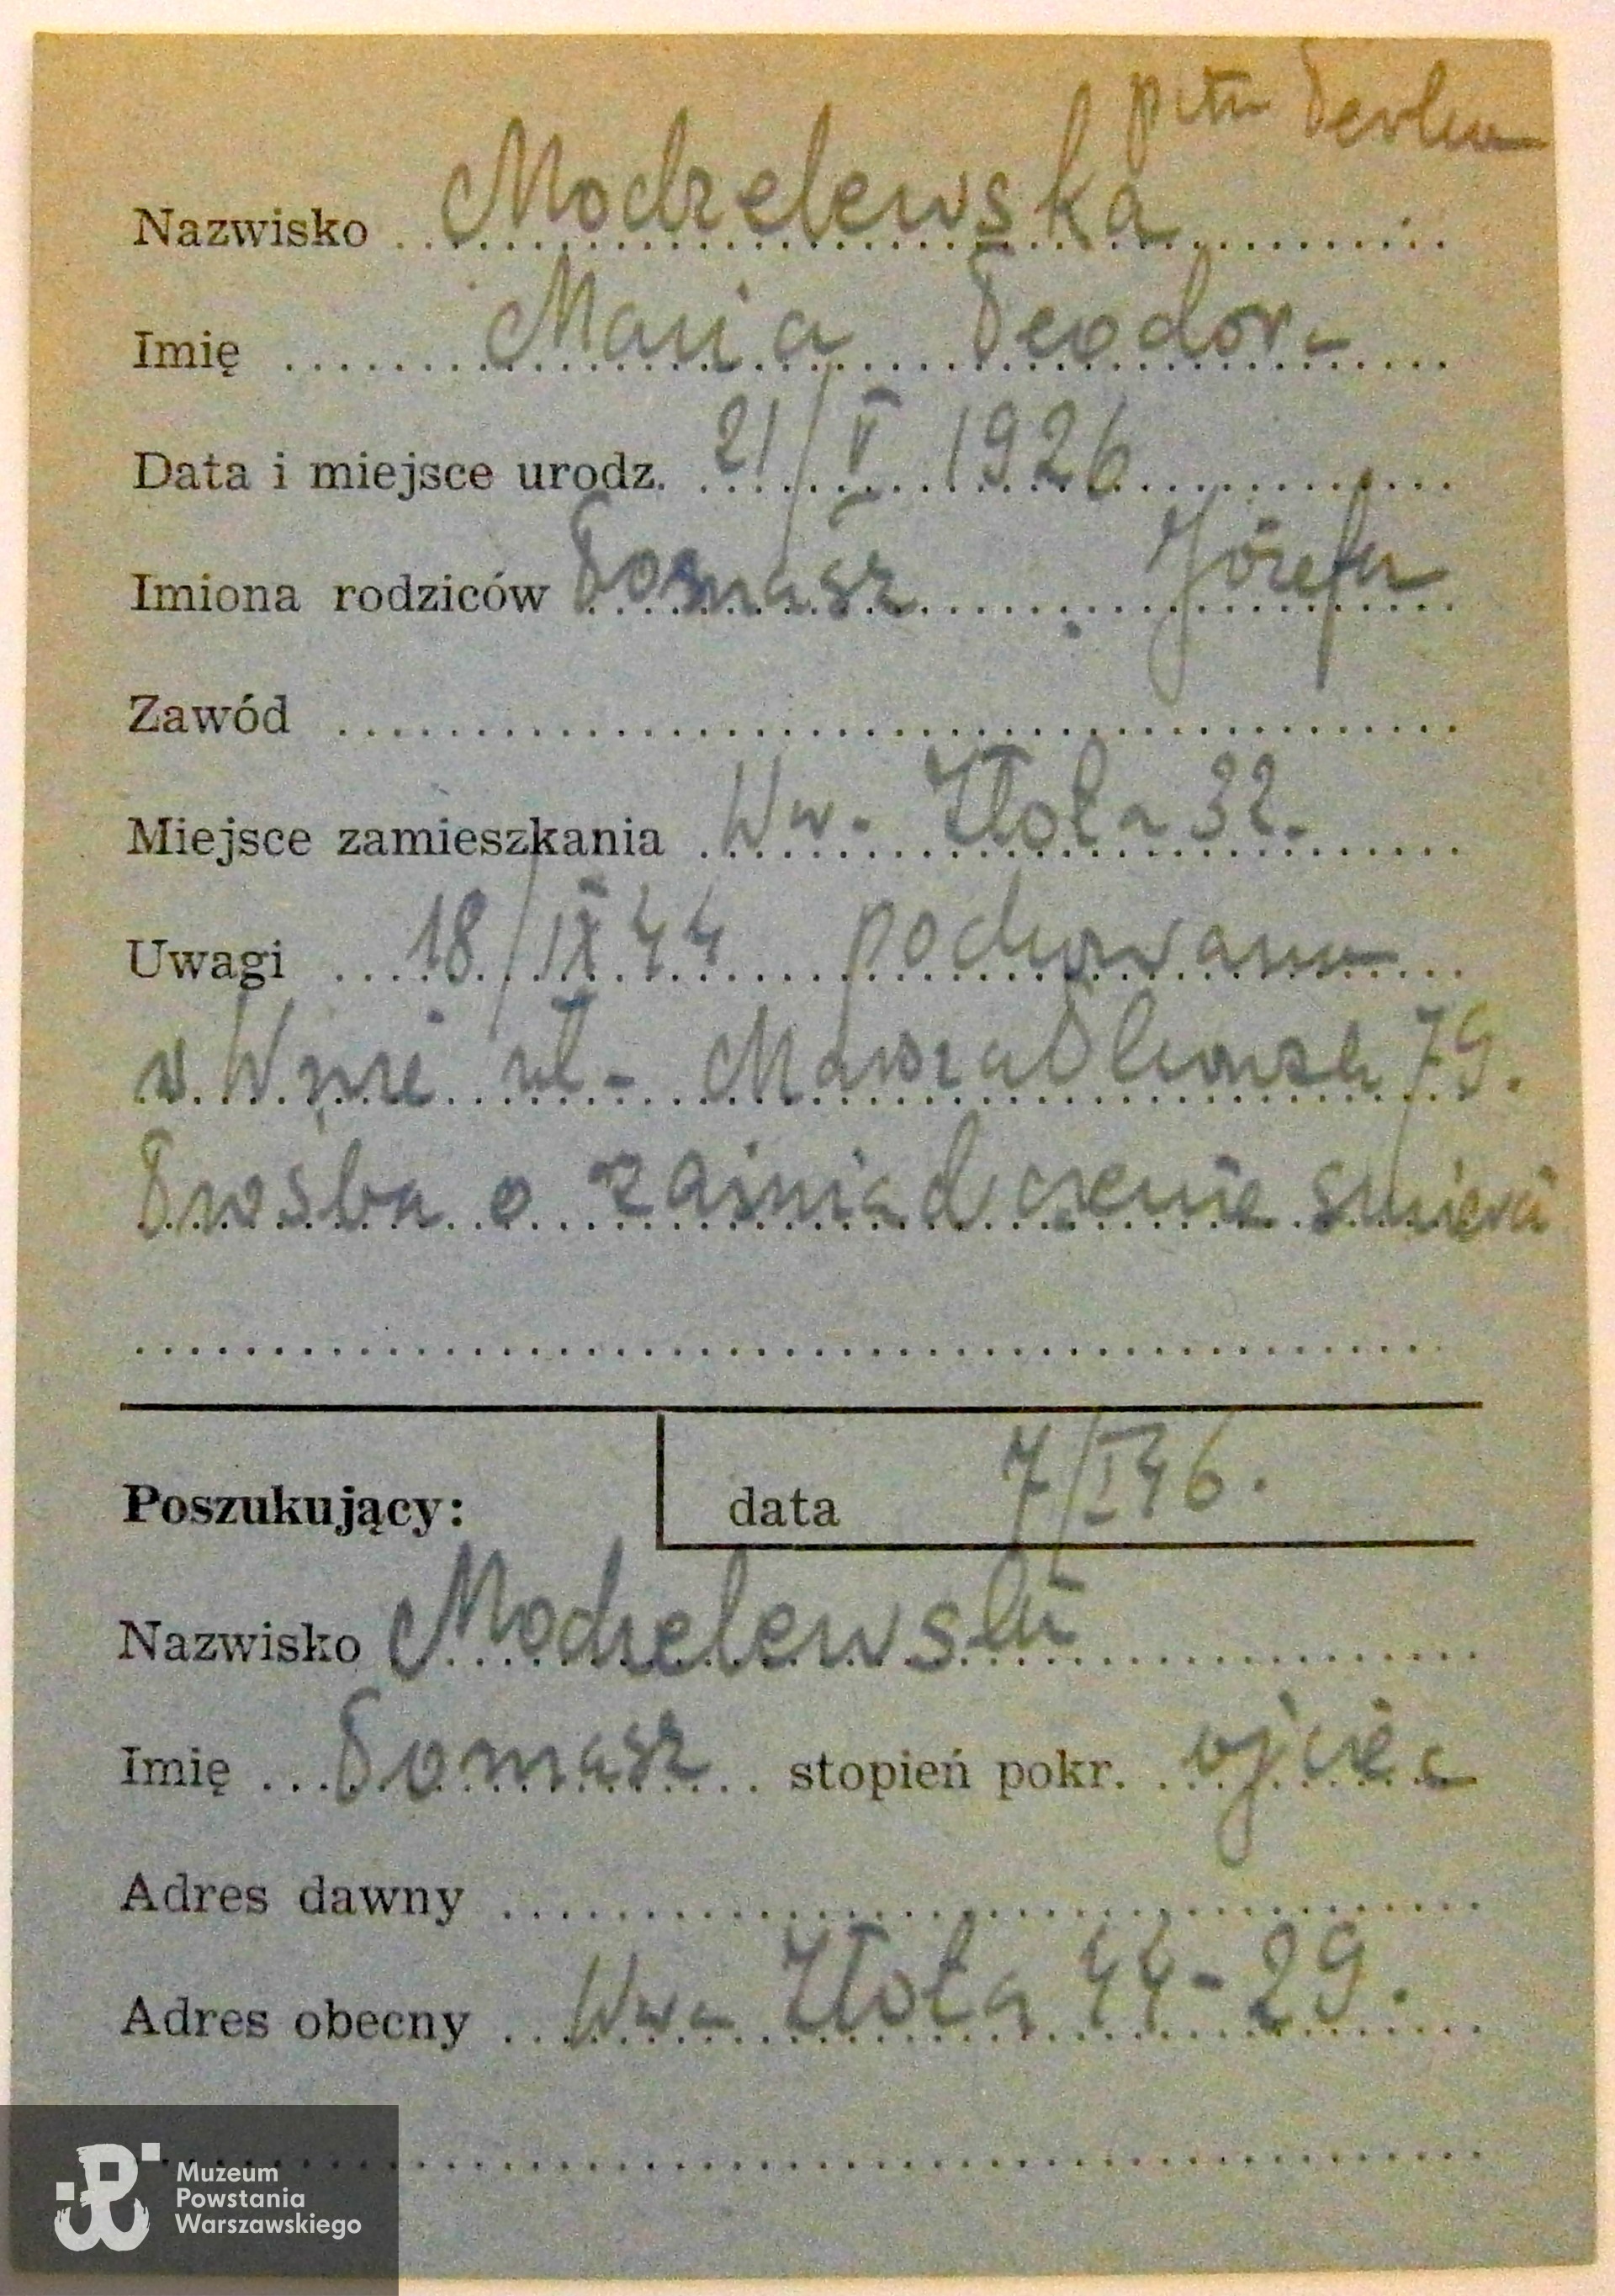 Nazwisko Modzelewska
Imię Maria Teodora
Data i miejsce urodz. 21/V 1926
Imiona rodziców Tomasz Józefa
Zawód
Miejsce zamieszkania Wwa Złota 32.
Uwagi 18/IX 44 pochowana
w Wwie ul. Marszałkowska 79.
Prośba o zaświadczenie śmierci
Poszukujący: data 7/I 46.
Nazwisko Modzelewski
Imię Tomasz stopień pokr. ojciec
Adres dawny
Adres obecny Wwa Złota 44-29.
Muzeum
Powstania
Warszawskiego